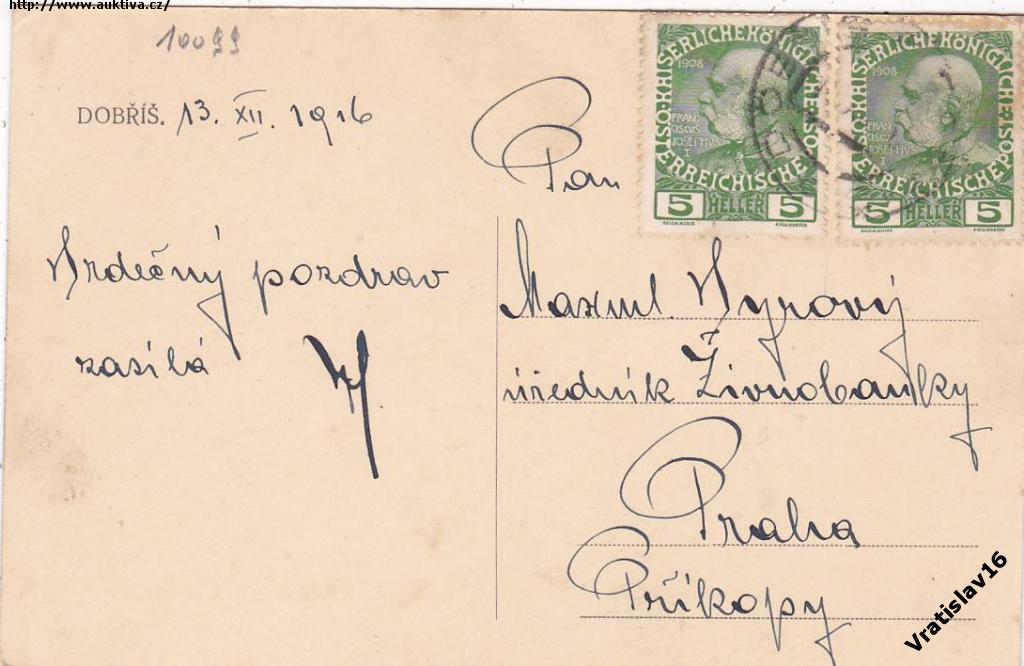 http://www.auktiva.cz/
10099
DOBŘÍŠ. 13. XII. 1916
Srdečný pozdrav
zasílá
Pan
Maxml. Syrový
úředník Živnobanky
Praha
Příkopy
KAISERLICHE KÖNIGLICHE
ÖSTERREICHISCHE POST
1908
FRAN
CISCVS
IOSEPHVS
I
5 HELLER 5
KAISERLICHE KÖNIGLICHE
ÖSTERREICHISCHE POST
1908
FRAN
CISCVS
IOSEPHVS
I
5 HELLER 5
Vratislav16